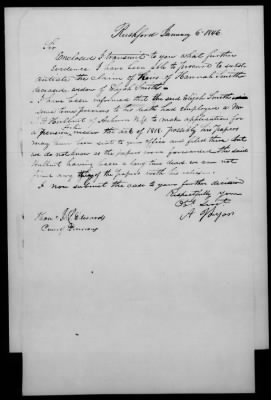 Rushford January 6th 1846
Sir
Enclosed I transmit to you what further
evidence I have been able to procure to substantiate
the claim of Heirs of Hannah Smith
deceased widow of Elijah Smith
I have been informed that the said Elijah Smith
some time previous to his death had employed a Mr
Hulbert of Auburn N.Y. to make application for
a pension under the act of 1818. possibly his papers
may have been sent to your office and filed there but
we do not know as the papers were forwarded the said
Hulbert having been a long time dead we can not
find any of the papers with his
I now submit the case to your further decision
Respectfully yours
Obt Servt
Hon. J. L. Edwards
Com. of Pensions